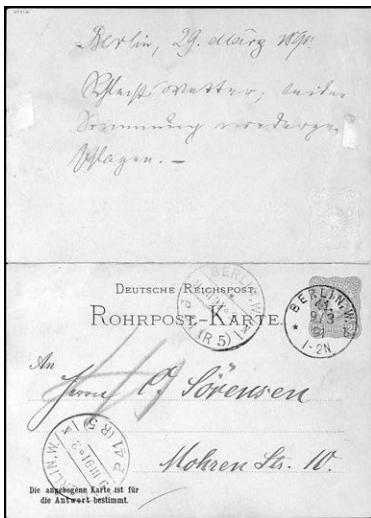 Berlin, 29. März 189
Schlechtes Wetter;
Stimmung niederge-
schlagen. —
DEUTSCHE REICHSPOST.
ROHRPOST-KARTE.
BERLIN, W.
P 41 (R 5)
BERLIN, W.
9/3
1-2N
An
Herrn O. Sörensen
Mohren Str. 10.
BERLIN, W.
P 41 (R 5)
Die angebogene Karte ist für
die Antwort bestimmt.